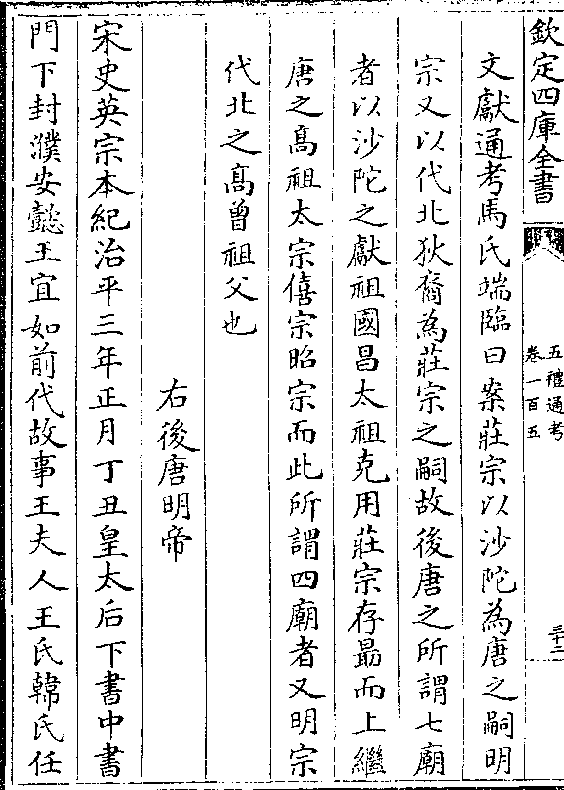 欽定四庫全書
五禮通考
卷一百五
三十二
文獻通考馬氏端臨曰案莊宗以沙陀為唐之嗣明
宗又以代北狄裔為莊宗之嗣故後唐之所謂七廟
者以沙陀之獻祖國昌太祖克用莊宗存勗而上繼
唐之髙祖太宗僖宗昭宗而此所謂四廟者又明宗
代北之髙曾祖父也
右後唐明帝
宋史英宗本紀治平三年正月丁丑皇太后下書中書
門下封濮安懿王宜如前代故事王夫人王氏韓氏任